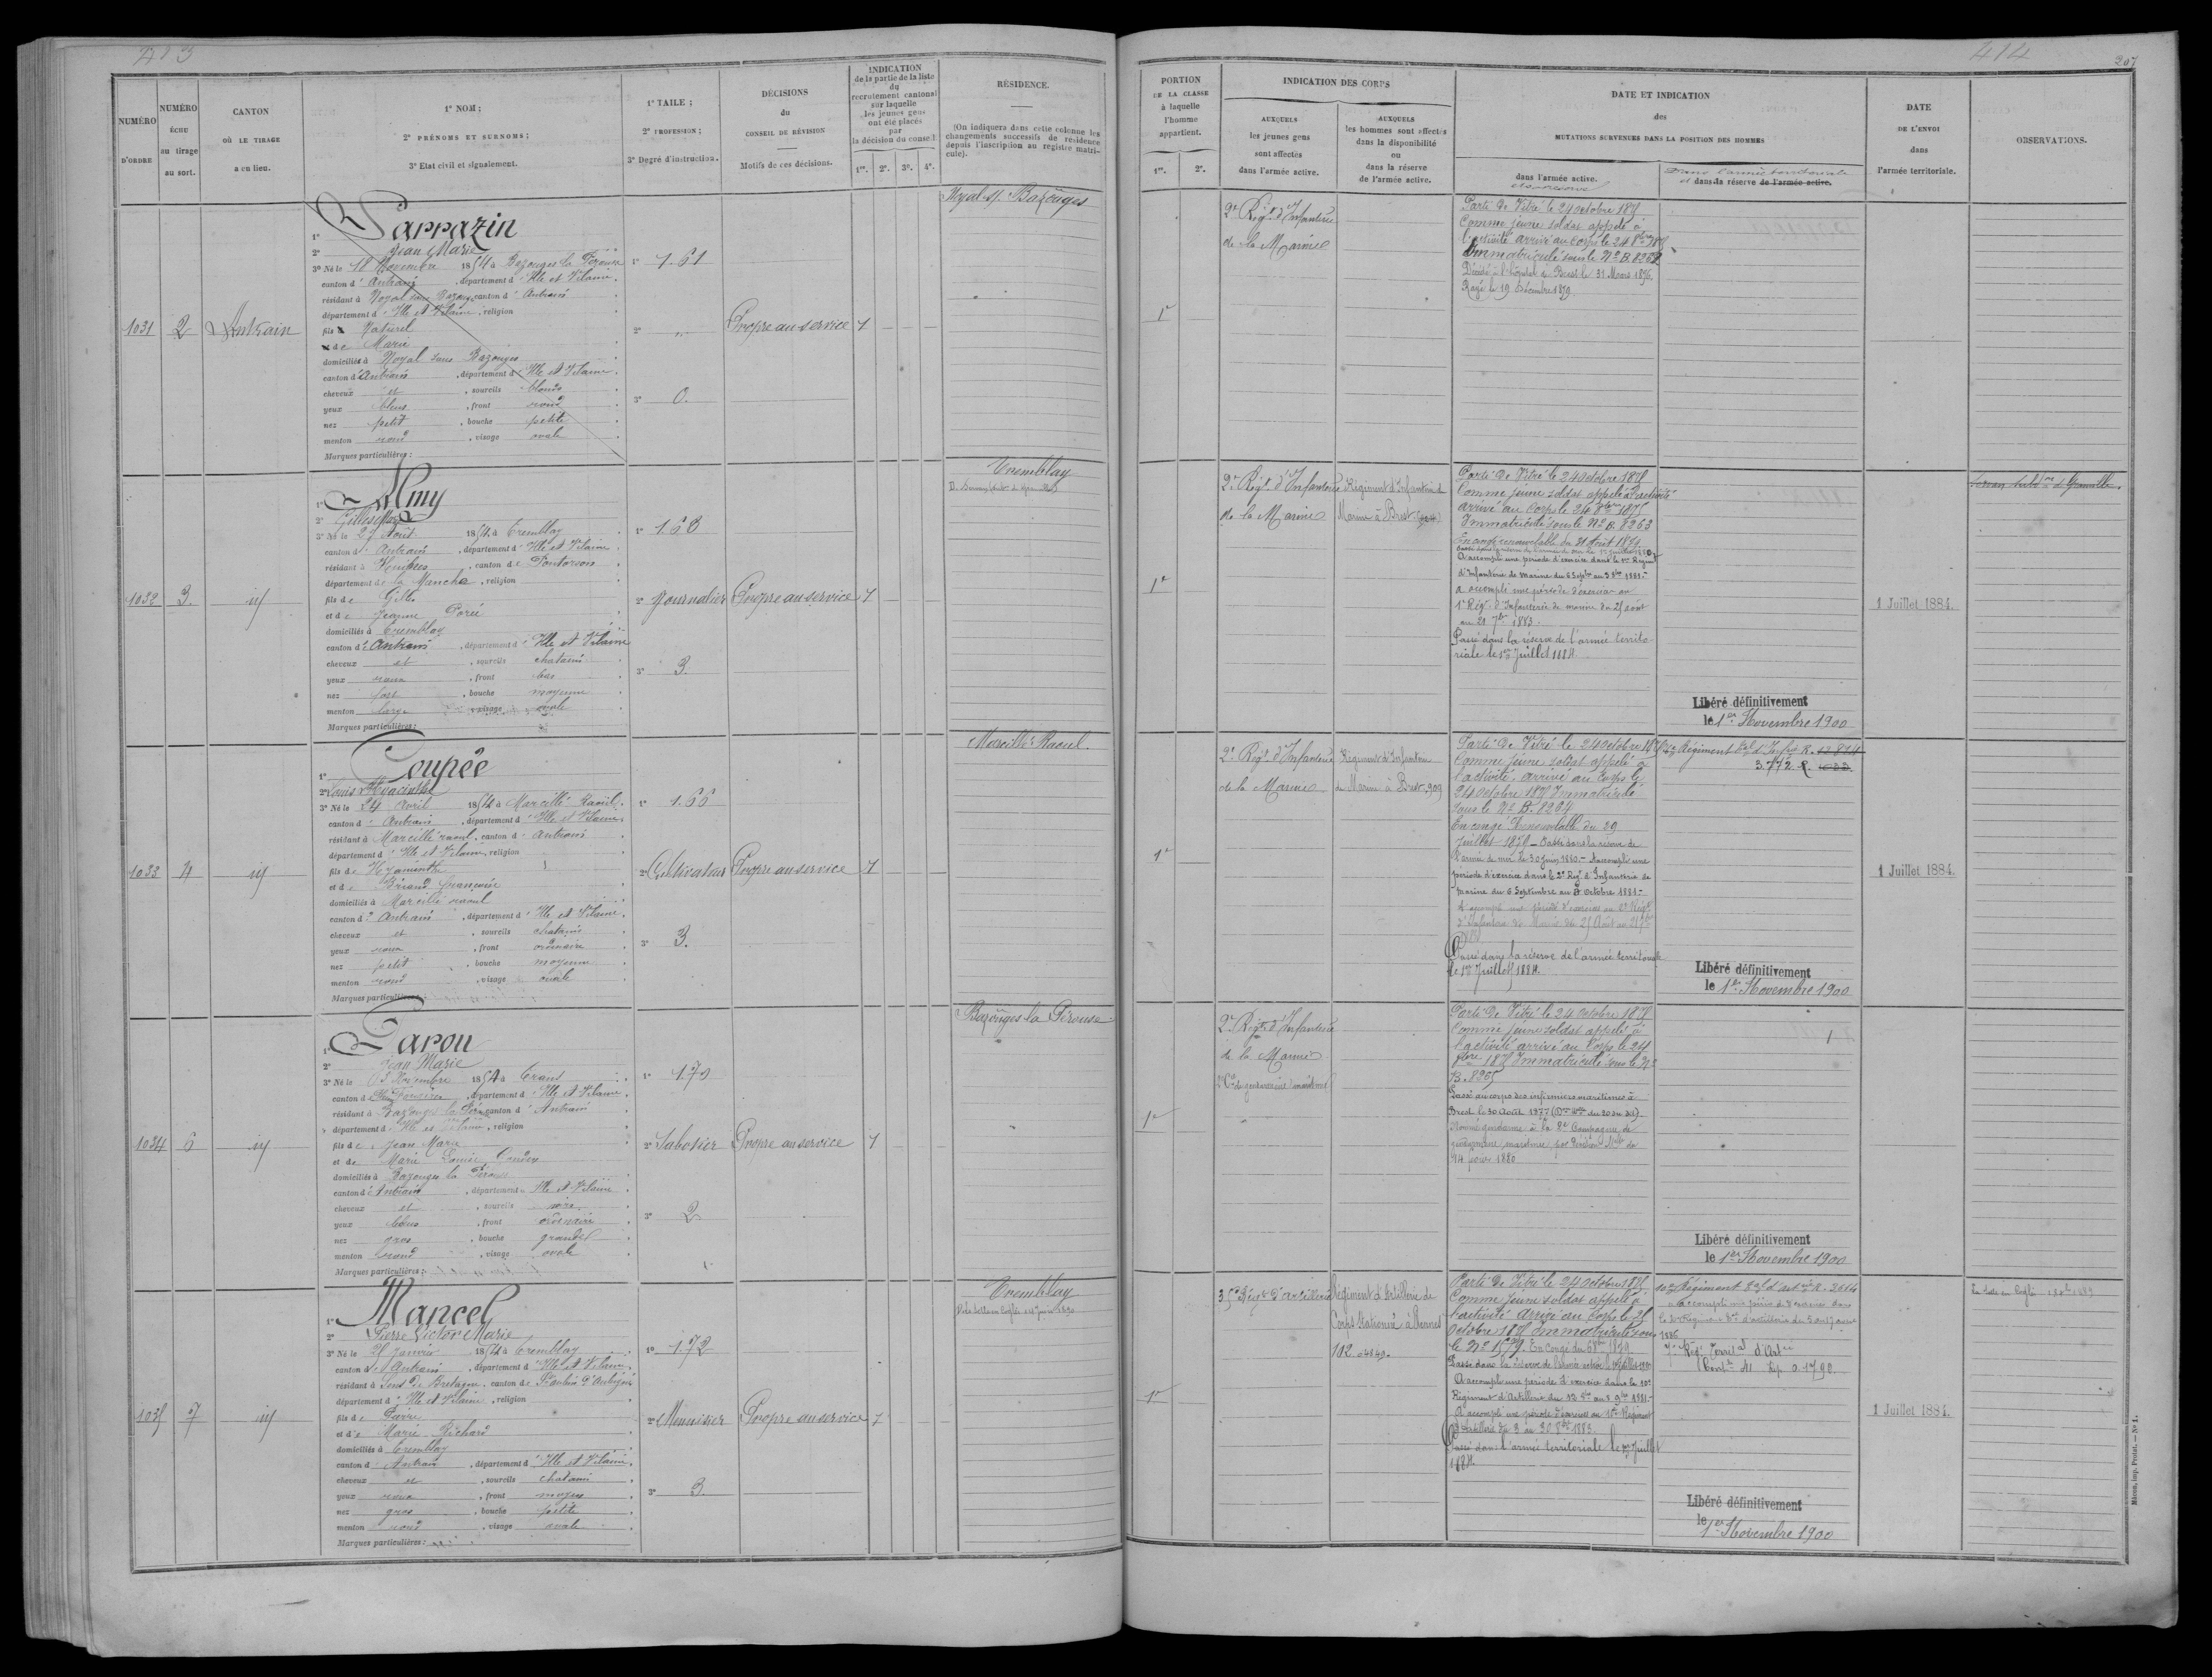 413
NUMÉRO D'ORDRE
NUMÉRO ÉCHU au tirage au sort.
CANTON OÙ LE TIRAGE a eu lieu.
1° NOM ;
2° PRÉNOMS ET SURNOMS ;
3° Etat civil et signalement.
1° TAILE ;
2° PROFESSION ;
3° Degré d'instruction.
DÉCISIONS du CONSEIL DE RÉVISION
Motifs de ces décisions.
INDICATION de la partie de la liste du recrutement cantonal sur laquelle les jeunes gens ont été placés par la décision du conseil
1re. 2e. 3e. 4e.
RÉSIDENCE.
(On indiquera dans cette colonne les changements successifs de résidence depuis l'inscription au registre matricule).
1031
2
Antrain
1° Sarrazin
2° Jean Marie
3° Né le 18 Novembre 1854 à Bazouges la Pérouse
canton d' Antrain , département d' Ille et Vilaine
résidant à Noyal sous Bazouges canton d' Antrain
département d' Ille et Vilaine , religion
fils Naturel
de Marie
domiciliés à Noyal sous Bazouges
canton d' Antrain , département d' Ille et Vilaine
cheveux et , sourcils blonds
yeux bleus , front rond
nez petit , bouche petite
menton rond , visage ovale
Marques particulières :
1° 1.61
2° "
3° 0.
Propre au service
1
Noyal s/ Bazouges
1032
3.
id
1° Amy
2° Gilles Marie
3° Né le 27 Aout 1854 à Tremblay
canton d' Antrain , département d' Ille et Vilaine
résidant à , canton de Pontorson
département de la Manche , religion
fils de Gilles
et de Jeanne Porée
domiciliés à Tremblay
canton d' Antrain , département d' Ille et Vilaine
cheveux et , sourcils chatains
yeux roux , front bas
nez fort , bouche moyenne
menton large , visage ovale
Marques particulières :
1° 1.68
2° Journalier
3° 3.
Propre au service
1
Tremblay
1033
4
id
1° Coupée
2° Louis Hyacinthe
3° Né le 24 Avril 1854 à Marcillé Raoul
canton d' Antrain , département d' Ille et Vilaine
résidant à Marcillé raoul , canton d' Antrain
département d' Ille et Vilaine , religion
fils de Hyacinthe
et de Briand Françoise
domiciliés à Marcillé raoul
canton d' Antrain , département d' Ille et Vilaine
cheveux et , sourcils chatains
yeux roux , front ordinaire
nez petit , bouche moyenne
menton rond , visage ovale
Marques particulières :
1° 1.66
2° Cultivateur
3° 3.
Propre au service
1
Marcillé Raoul.
1034
6
id
1° Garou
2° Jean Marie
3° Né le Novembre 1854 à Trans
canton de Pleine Fougères , département d' Ille et Vilaine
résidant à Bazouges la Pér canton d' Antrain
département d' Ille et Vilaine , religion
fils de Jean Marie
et de Marie Louise
domiciliés à Bazouges la Pérouse
canton d' Antrain , département d' Ille et Vilaine
cheveux et , sourcils noirs
yeux bleus , front ordinaire
nez gros , bouche grande
menton rond , visage ovale
Marques particulières :
1° 1.70
2° Sabotier
3° 2
Propre au service
1
Bazouges la Pérouse
1035
7
id
1° Mancel
2° Pierre Victor Marie
3° Né le 25 Janvier 1854 à Tremblay
canton d' Antrain , département d' Ille et Vilaine
résidant à Sens de Bretagne , canton de St aubin d'Aubigné
département d' Ille et Vilaine , religion
fils de Pierre
et de Marie Richard
domiciliés à Tremblay
canton d' Antrain , département d' Ille et Vilaine
cheveux et , sourcils chatains
yeux roux , front moyen
nez gros , bouche petite
menton rond , visage ovale
Marques particulières :
1° 1.72
2° Menuisier
3° 3.
Propre au service
1
Tremblay
414
207
PORTION DE LA CLASSE à laquelle l'homme appartient.
1re. 2e.
INDICATION DES CORPS
AUXQUELS les jeunes gens sont affectés dans l'armée active.
AUXQUELS les hommes sont affectés dans la disponibilité ou dans la réserve de l'armée active.
DATE ET INDICATION
des
MUTATIONS SURVENUES DANS LA POSITION DES HOMMES
dans l'armée active.
et sa réserve
Dans l'armée territoriale
et dans la réserve de l'armée active.
DATE DE L'ENVOI dans l'armée territoriale.
OBSERVATIONS.
1re
2e Régt d'Infanterie
de la Marine
Parti de Vitré le 24 octobre 1875
Comme jeune soldat appelé à
l'activité arrivé au Corps le 24 8bre 1875
Immatriculé sous le No B. 8262
Décédé à l'hôpital de Brest le 31 Mars 1876.
Rayé le 19 Décembre 1879.
1re
2e Régt d'Infanterie
de la Marine
Régiment d'Infanterie de
Marine à Brest
Parti de Vitré le 24 Octobre 1875
Comme jeune soldat appelé à l'activité
arrivé au Corps le 24 8bre 1875
Immatriculé sous le No B. 8263
En congé renouvelable du 31 Août 1879
A accompli une période d'exercice dans le 1er Régiment
d'Infanterie de marine du 6 Septbre au 3 8bre 1881.-
a accompli une période d'exercice au
1er Régt d'Infanterie de marine du 25 août
au 21 7bre 1883.
Passé dans la réserve de l'armée territo-
riale le 1er Juillet 1884.
Libéré définitivement
le 1er Novembre 1900
1 Juillet 1884.
1re
2e Régt d'Infanterie
de la Marine
Régiment d'Infanterie
de Marine à Brest. 909
Parti de Vitré le 24 octobre 1875
Comme jeune soldat appelé à
l'activité, arrivé au Corps le
24 octobre 1875 Immatriculé
sous le No B. 8264
En congé Renouvelable du 29
Juillet 1879 - Passé dans la réserve de
l'armée de mer le 30 Juin 1880.- A accompli une
période d'exercice dans le 2e Régt d'Infanterie de
marine du 6 Septembre au 3 Octobre 1881.-
A accompli une période d'exercices au 2e Régt
d'Infanterie de Marine du 25 Août au 21 7bre
Passé dans la réserve de l'armée territoriale
le 1er Juillet 1884.
3.772
Libéré définitivement
le 1er Novembre 1900
1 Juillet 1884.
1re
2e Régt d'Infanterie
de la Marine
2e Cie de gendarmerie maritime
Parti de Vitré le 24 octobre 1875
Comme jeune soldat appelé à
l'activité arrivé au Corps le 24
8bre 1875 Immatriculé sous le No
B. 8265
Passé au corps des infirmiers maritimes à
Brest le 30 Août 1877
Nommé gendarme à la 2e Compagnie de
gendarmerie maritime par décision Mlle du
14 1880
Libéré définitivement
le 1er Novembre 1900
1re
35e Régt d'artillerie
Régiment d'Artillerie de
Corps Stationné à Rennes
102
Parti de Vitré le 24 octobre 1875
Comme jeune soldat appelé à
l'activité Arrivé au Corps le 25
Octobre 1875 Immatriculé sous
le No 1579.
Passé dans la réserve de l'armée active le
A accompli une période d'exercice dans le 10e
Régiment d'Artillerie du 12 8bre au 8 9bre 1881.-
A accompli une période d'exercices au Régiment
d'Artillerie du 3 au 30 8bre 1883.
Passé dans l'armée territoriale le 1er Juillet
1884
10e Régiment
1886
7e Régt Territal d'Artie
Libéré définitivement
le 1er Novembre 1900
1 Juillet 1884.
Mâcon, imp. Protat. — No 1.